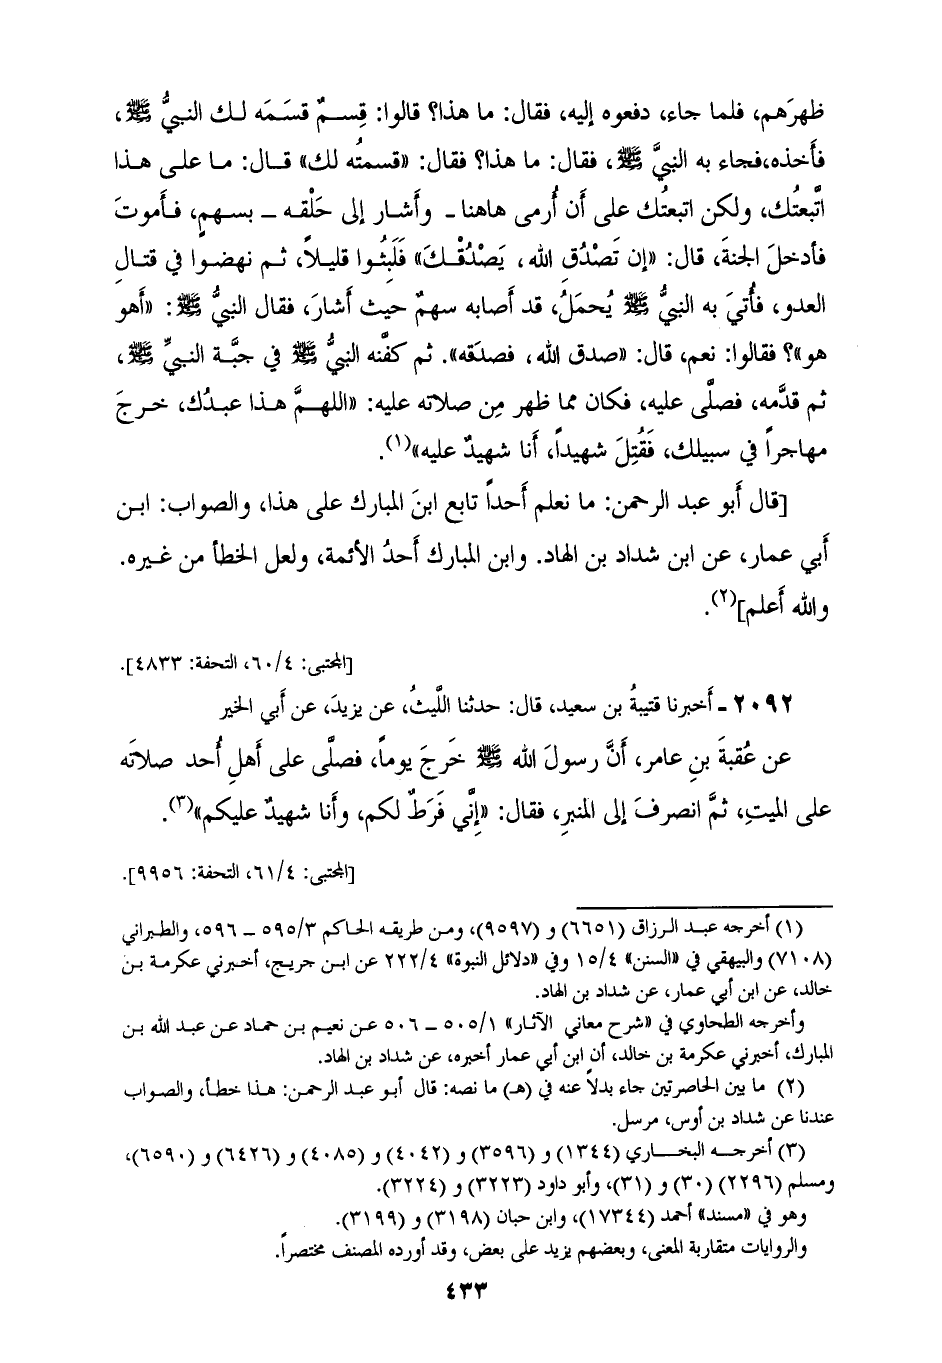 ظهرَهم، فلما جاء، دفعوه إليه، فقال: ما هذا؟ قالوا: قِسمٌ قسَمَه لك النبيُّ ﷺ،
فأَخذه،فجاء به النبيَّ ﷺ، فقال: ما هذا؟ فقال: «قسمتُه لك» قال: ما على هذا
اتَّبعتُك، ولكن اتبعتُك على أَن أُرمى هاهنا ـ وأَشار إلى حَلْقه ـ بسهمٍ، فأَموتَ
فأدخلَ الجنةَ، قال: «إن تَصْدُقِ الله، يَصْدُقْكَ» فَلَبِثُوا قليلاً، ثم نهضوا في قتالِ
العدو، فأُتيَ به النبيُّ ﷺ يُحمَلُ، قد أَصابه سهمٌ حيث أشارَ، فقال النبيُّ ﷺ: «أَهو
هو»؟ فقالوا: نعم، قال: «صدق الله، فصدَقه». ثم كفَّنه النبيُّ ﷺ في جبَّة النبيِّ ﷺ،
ثم قدَّمه، فصلَّى عليه، فكان مما ظهر مِن صلاته عليه: «اللهمَّ هذا عبدُك، خرجَ
مهاجراً في سبيلك، فَقُتِلَ شهيداً، أَنا شهيدٌ عليه»(١).
[قال أَبو عبد الرحمن: ما نعلم أَحداً تابع ابنَ المبارك على هذا، والصواب: ابن
أَبي عمار، عن ابن شداد بن الهاد. وابن المبارك أَحدُ الأئمة، ولعل الخطأ من غيره.
والله أَعلم](٢).
[المجتبى: ٦٠/٤، التحفة: ٤٨٣٣].
٢٠٩٢ ـ أَخبرنا قتيبةُ بن سعيد، قال: حدثنا اللَّيثُ، عن يزيدَ، عن أَبي الخير
عن عُقبةَ بنِ عامر، أَنَّ رسولَ الله ﷺ خَرجَ يوماً، فصلَّى على أَهلِ أُحد صلاتَه
على الميتِ، ثمَّ انصرفَ إلى المنبرِ، فقال: «إنَّي فَرَطٌ لكم، وأَنا شهيدٌ عليكم»(٣).
[المجتبى: ٦١/٤، التحفة: ٩٩٥٦].
(١) أخرجه عبد الرزاق (٦٦٥١) و (٩٥٩٧)، ومن طريقه الحاكم ٥٩٥/٣ ـ ٥٩٦، والطبراني
(٧١٠٨) والبيهقي في «السنن» ١٥/٤ وفي «دلائل النبوة» ٢٢٢/٤ عن ابن جريج، أخبرني عكرمة بن
خالد، عن ابن أبي عمار، عن شداد بن الهاد.
وأخرجه الطحاوي في «شرح معاني الآثار» ٥٠٥/١ ـ ٥٠٦ عن نعيم بن حماد عن عبد الله بن
المبارك، أخبرني عكرمة بن خالد، أن ابن أبي عمار أخبره، عن شداد بن الهاد.
(٢) ما بين الحاصرتين جاء بدلاً عنه في (هـ) ما نصه: قال أبو عبد الرحمن: هذا خطأ، والصواب
عندنا عن شداد بن أوس، مرسل.
(٣) أخرجه البخاري (١٣٤٤) و (٣٥٩٦) و (٤٠٤٢) و (٤٠٨٥) و (٦٤٢٦) و (٦٥٩٠)،
ومسلم (٢٢٩٦) (٣٠) و (٣١)، وأبو داود (٣٢٢٣) و (٣٢٢٤).
وهو في «مسند» أحمد (١٧٣٤٤)، وابن حبان (٣١٩٨) و (٣١٩٩).
والروايات متقاربة المعنى، وبعضهم يزيد على بعض، وقد أورده المصنف مختصراً.
٤٣٣